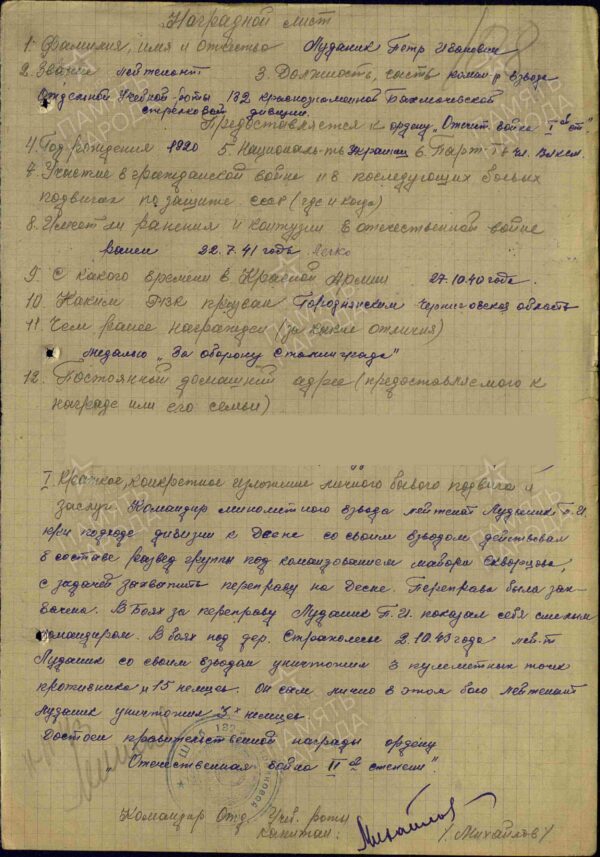 Наградной лист
1. Фамилия, имя и отчество Лузаник Петр Иванович
2. Звание лейтенант 3. Должность, часть коман-р взвода
Отдельной Учебной роты 132 краснознаменной Бахмачевской
стрелковой дивизии.
Предоставляется к ордену „Отечеств. война I ой ст."
4. Год рождения 1920 5. Националь-ть украинец 6. Парт-ть чл. ВЛКСМ.
7. Участие в гражданской войне и в последующих боевых
подвигах по защите СССР (где и когда)
8. Имеет ли ранения и контузии в отечественной войне
ранен 22.7.41 года легко
9. С какого времени в Красной Армии 27.10.40 года.
10. Каким РВК призван Городнянским Черниговская область
11. Чем ранее награжден (за какие отличия)
Медалью „За оборону Сталинграда"
12. Постоянный домашний адрес (предоставляемого к
награде или его семьи)
I. Краткое, конкретное изложение личного боевого подвига и
заслуг Командир минометного взвода лейтенант Лузаник П.И.
при подходе дивизии к Десне со своим взводом действовал
в составе развед группы под командованием майора Скворцова,
с задачей захватить переправу на Десне. Переправа была зах-
вачена. В боях за переправу Лузаник П.И. показал себя смелым
командиром. В боях под дер. Страхолесье 2.10.43 года лей-т
Лузаник со своим взводом уничтожил 3 пулеметных точек
противника и 15 немцев. Он сам лично в этом бою лейтенант
Лузаник уничтожил 3х немцев.
Достоин правительственной награды ордену
„Отечественная война II ой степени".
Командир Отд. Учеб. роты
капитан: /Михайлов/